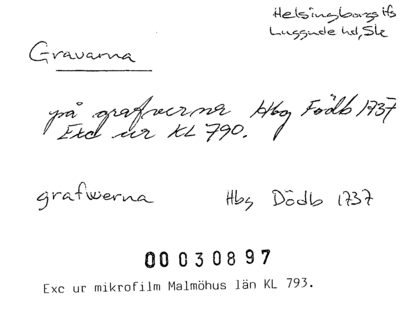 Helsingborgs lfs
Luggude hd, Sk
Gravarna
på grafverna Hbg Födb 1737
Exc ur KL 790.
grafwerna Hbg Dödb 1737
00 030897
Exc ur mikrofilm Malmöhus län KL 793.